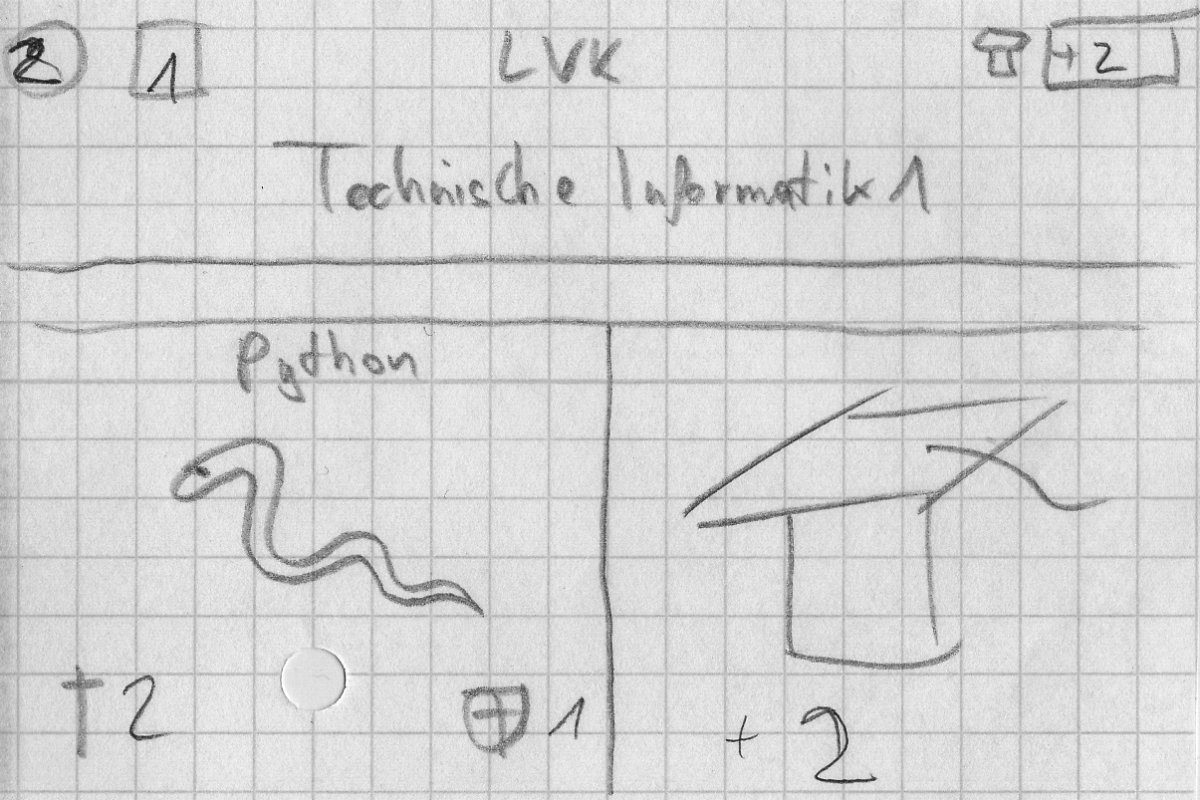 2 1 LVK +2
Technische Informatik 1
Python
2 1
+ 2